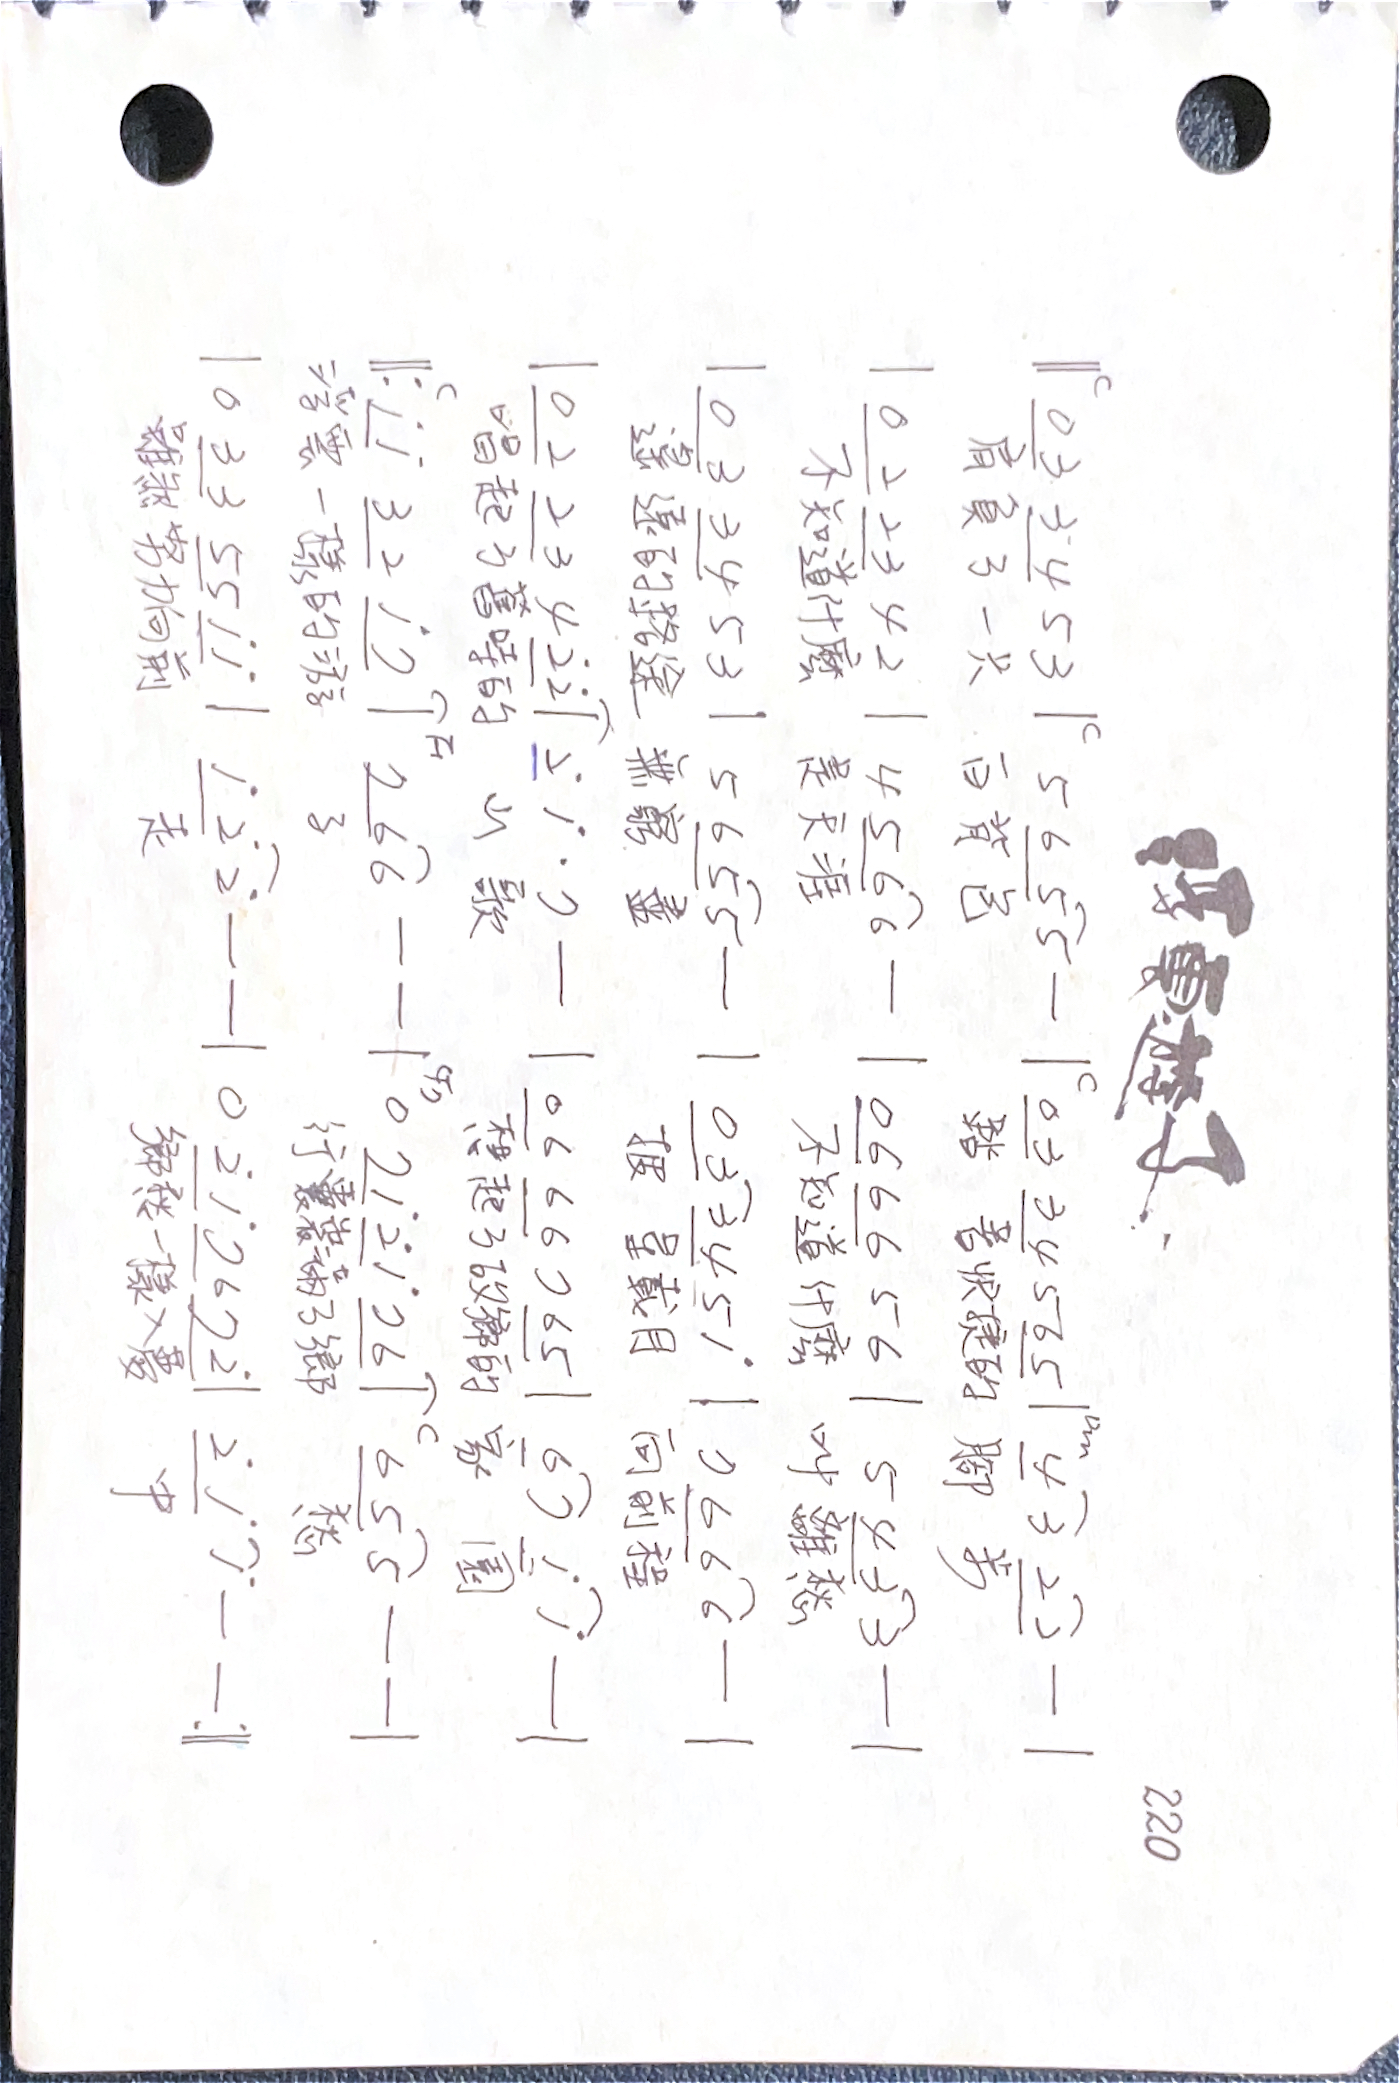 浮雲遊子
220
C C C Dm
‖ 0 3 3 4 5 3 | 5 6 5 5 — | 0 3 3 4 5 6 5 | 4 3 2 2 — |
肩負了一只 白背包 踏着快捷的腳步
| 0 2 2 3 4 2 | 4 5 6 6 — | 0 6 6 6 5 6 | 5 4 3 3 — |
不知道什麼 是天涯 不知道什麼 叫離愁
| 0 3 3 4 5 3 | 5 6 5 5 — | 0 3 3 4 5 i | 7 6 6 6 — |
遙遠的路途 無窮盡 披星載月 向前程
| 0 2 2 3 4 2̇ 2̇ | 2̇ i · 7 — | 0 6 6 6 7 6 5 | 6 7 i i — |
唱起了舊時的 山歌 想起了故鄉的 家園
C F C
‖: i i 3 2 i 7 | 7 6 6 — — | 0 7 i 2̇ i 7 6 | 6 5 5 — — |
浮雲一樣的游 子 行囊裝滿了鄉 愁
| 0 3 3 5 5 i i | i 2̇ 2̇ — — | 0 2̇ i 7 6 7 2̇ | 2̇ i i — — :‖
雖然努力向前 走 鄉愁一樣入夢 中